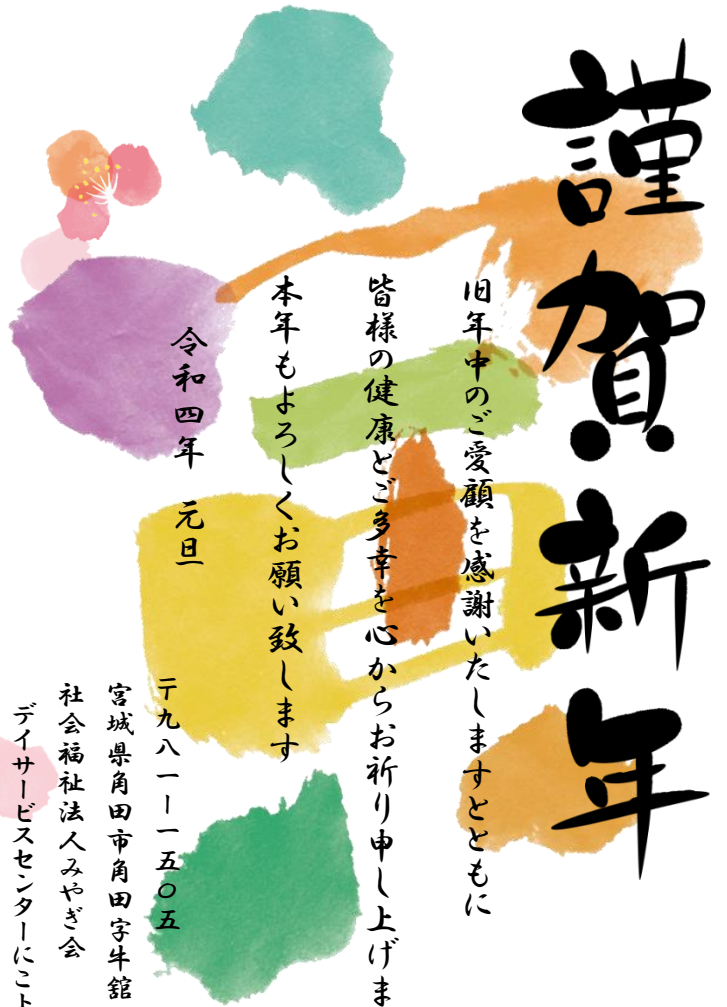 謹賀新年
旧年中のご愛顧を感謝いたしますとともに
皆様の健康とご多幸を心からお祈り申し上げま
本年もよろしくお願い致します
令和四年 元旦
〒九八一ー一五〇五
宮城県角田市角田字牛舘
社会福祉法人みやぎ会
デイサービスセンターにこト